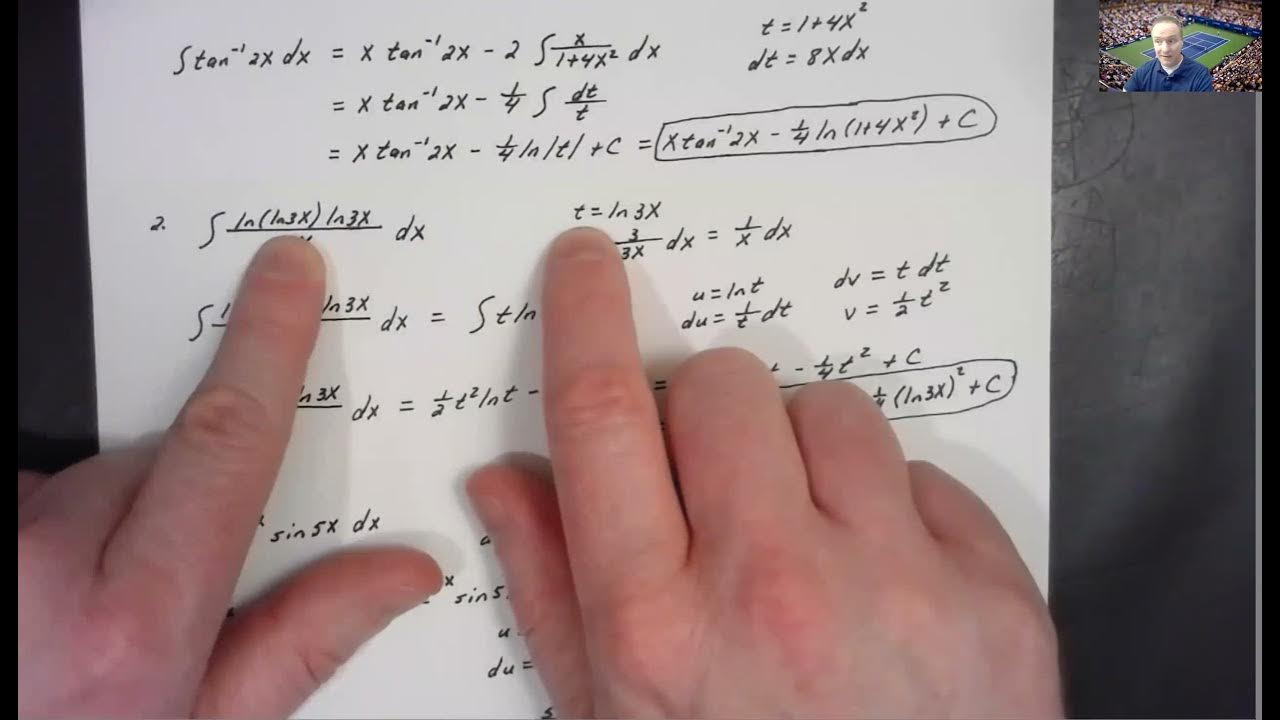 ∫ tan⁻¹ 2x dx = x tan⁻¹ 2x - 2 ∫ x/(1+4x²) dx
t = 1+4x²
dt = 8x dx
= x tan⁻¹ 2x - 1/4 ∫ dt/t
= x tan⁻¹ 2x - 1/4 ln|t| + C = x tan⁻¹ 2x - 1/4 ln(1+4x²) + C
2. ∫ ln(ln3x) ln3x dx
t = ln 3x
3/3x dx = 1/x dx
∫ ln3x dx = ∫ t ln
u = ln t
du = 1/t dt
dv = t dt
v = 1/2 t²
ln 3x dx = 1/2 t² ln t - = t - 1/4 t² + C
1/4 (ln3x)² + C
x sin 5x dx
x sin 5
u
du =